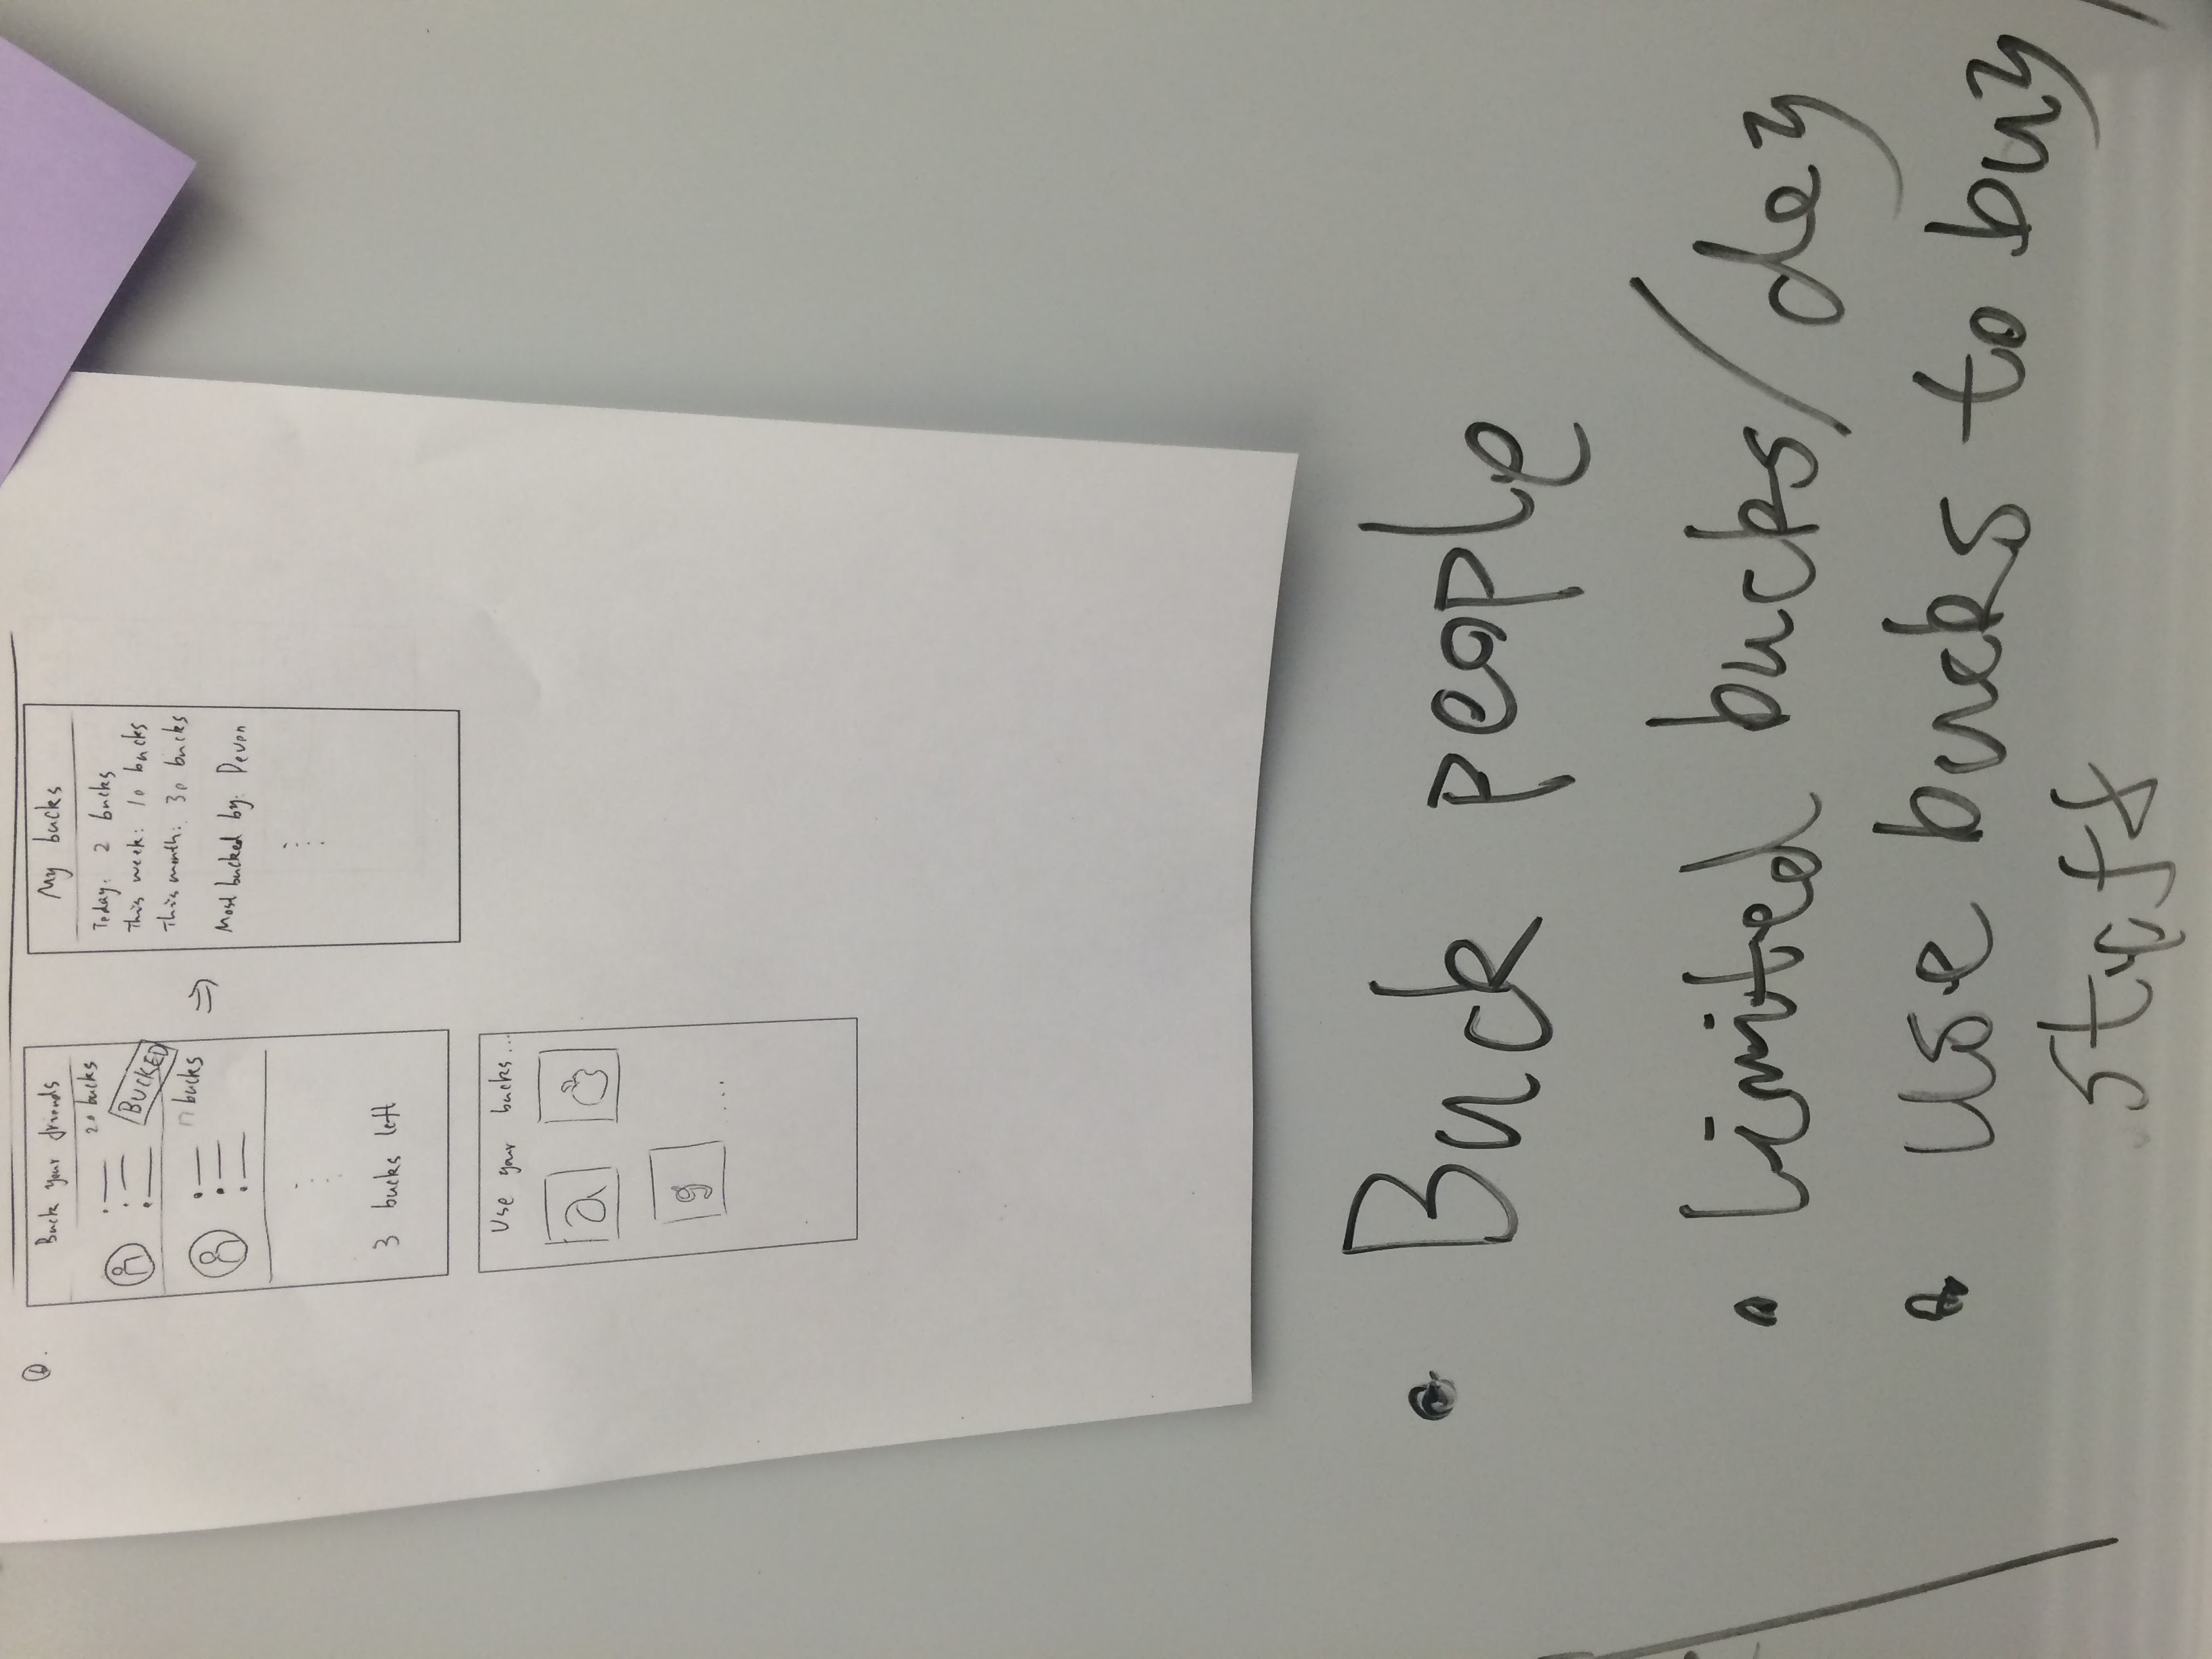 Buck your friends
20 bucks
BUCKED
bucks
3 bucks left
My bucks
Today: 2 bucks
This week: 10 bucks
This month: 30 bucks
Most bucked by: Devon
Use your bucks...
a
g
...
• Buck people
• limited bucks/day
• use bucks to buy
stuff